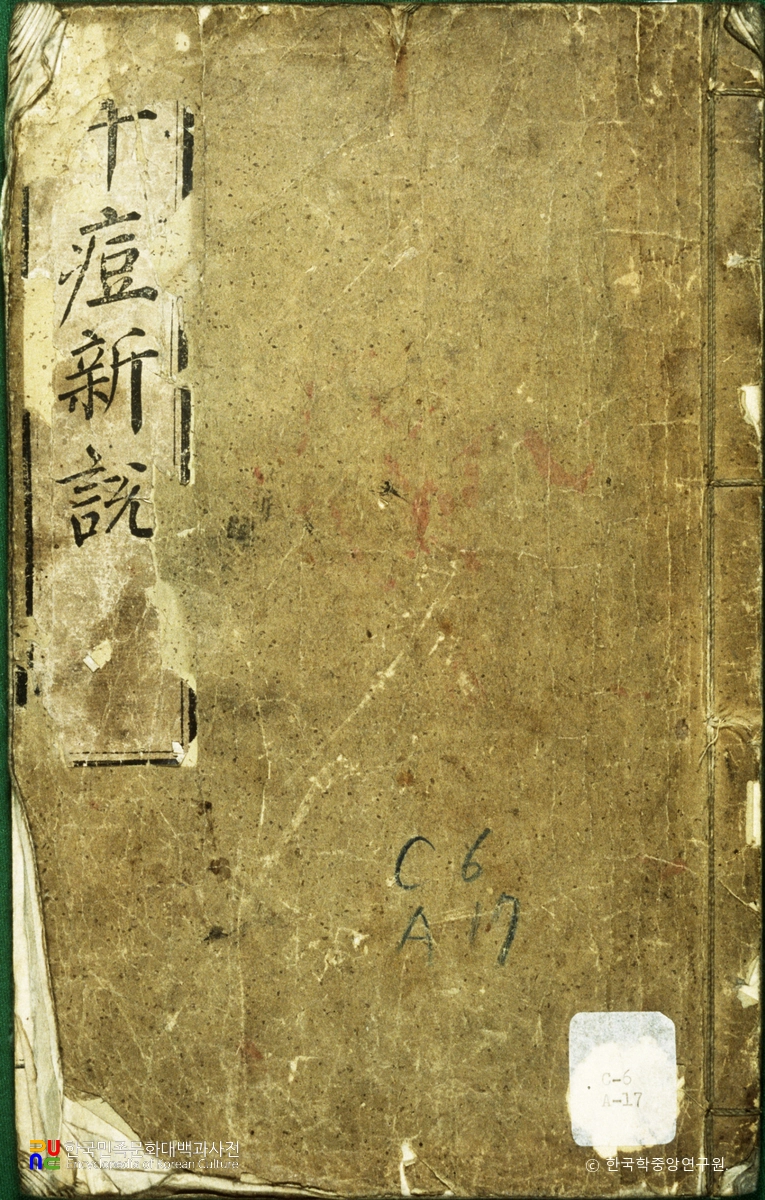 牛痘新說
C 6
A 17
C-6
A-17
한국민족문화대백과사전
Encyclopedia of Korean Culture
© 한국학중앙연구원